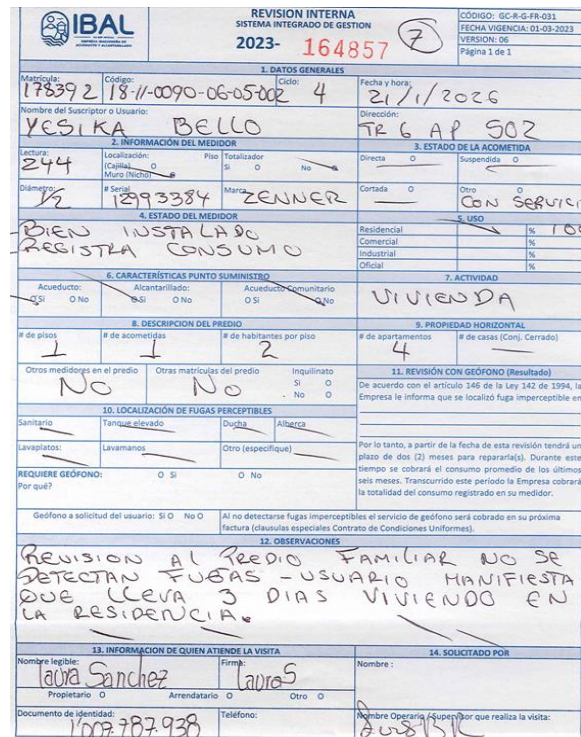 IBAL
REVISION INTERNA
SISTEMA INTEGRADO DE GESTION
2023- 164857 7
CÓDIGO: GC-R-G-FR-031
FECHA VIGENCIA: 01-03-2023
VERSION: 06
Página 1 de 1
1. DATOS GENERALES
Matrícula: 178392 Código: 18-11-0090-06-05-002 Ciclo: 4 Fecha y hora: 21/1/2026
Nombre del Suscriptor o Usuario: YESIKA BELLO
Dirección: TR 6 AP 502
2. INFORMACIÓN DEL MEDIDOR
Lectura: 244 Localización: Piso (Cajilla) O Muro (Nicho) Totalizador Si O No
Diámetro: 1/2 # Serial 12993384 Marca ZENNER
3. ESTADO DE LA ACOMETIDA
Directa O Suspendida O
Cortada O Otro O CON SERVICI
4. ESTADO DEL MEDIDOR
BIEN INSTALADO
REGISTRA CONSUMO
5. USO
Residencial % 100
Comercial %
Industrial %
Oficial %
6. CARACTERÍSTICAS PUNTO SUMINISTRO
Acueducto: Alcantarillado: Acueducto Comunitario
O Si O No O Si O No O Si O No
7. ACTIVIDAD
VIVIENDA
8. DESCRIPCION DEL PREDIO
# de pisos # de acometidas # de habitantes por piso
1 1 2
9. PROPIEDAD HORIZONTAL
# de apartamentos # de casas (Conj. Cerrado)
4
Otros medidores en el predio Otras matriculas del predio Inquilinato
No No Si O
No O
10. LOCALIZACIÓN DE FUGAS PERCEPTIBLES
Sanitario Tanque elevado Ducha Alberca
Lavaplatos: Lavamanos Otro (especifique)
REQUIERE GEÓFONO: O Si O No
Por qué?
11. REVISIÓN CON GEÓFONO (Resultado)
De acuerdo con el artículo 146 de la Ley 142 de 1994, la
Empresa le informa que se localizó fuga imperceptible en
Por lo tanto, a partir de la fecha de esta revisión tendrá un
plazo de dos (2) meses para repararla(s). Durante este
tiempo se cobrará el consumo promedio de los últimos
seis meses. Transcurrido este período la Empresa cobrará
la totalidad del consumo registrado en su medidor.
Geófono a solicitud del usuario: Si O No O
Al no detectarse fugas imperceptibles el servicio de geófono será cobrado en su próxima
factura (clausulas especiales Contrato de Condiciones Uniformes).
12. OBSERVACIONES
REVISION AL PREDIO FAMILIAR NO SE
DETECTAN FUGAS - USUARIO MANIFIESTA
QUE LLEVA 3 DIAS VIVIENDO EN
LA RESIDENCIA.
13. INFORMACION DE QUIEN ATIENDE LA VISITA
Nombre legible: Laura Sanchez Firma: Laura S
Propietario O Arrendatario O Otro O
Documento de identidad: 1'007.787.938 Teléfono:
14. SOLICITADO POR
Nombre :
Nombre Operario / Supervisor que realiza la visita: